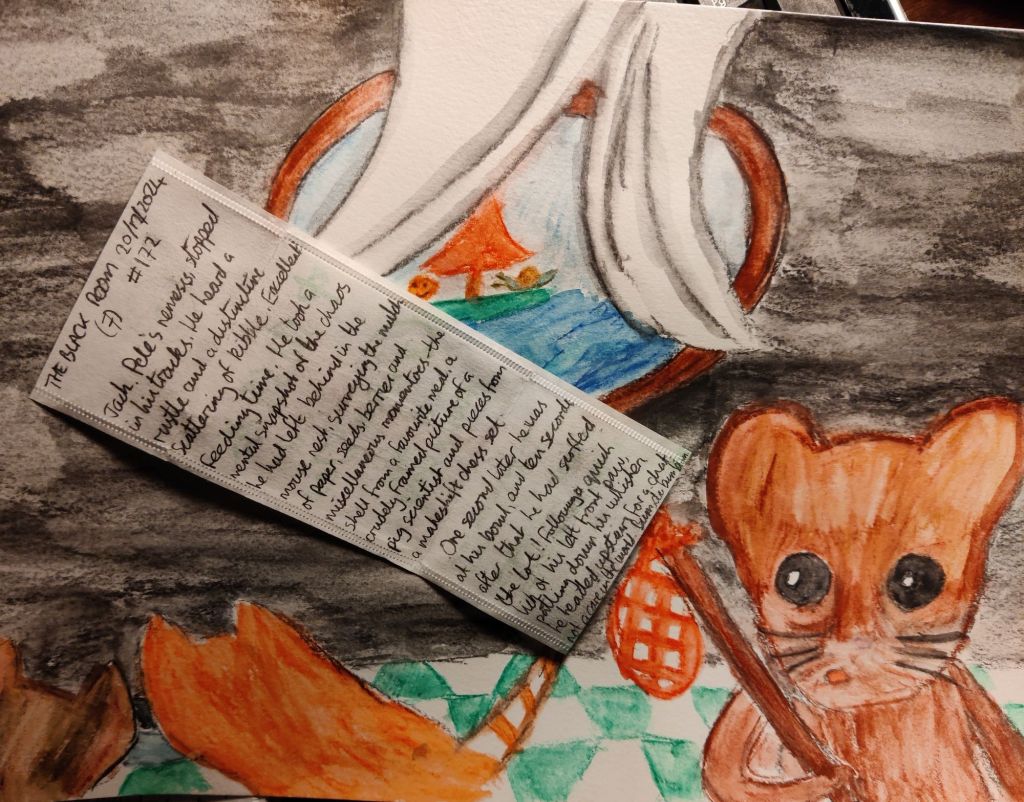 THE BLACK ROOM 20/11/2024
(7) #172
Tach. Pole's nemesis, stopped
in his tracks. He heard a
rustle and a distinctive
scattering of kibble. Excellent!
Feeding time. He took a
mental snapshot of the chaos
he had left behind in the
mouse nest: surveying the mulch
of paper seeds, berries and
miscellaneous mementoes - the
shell from a favourite snail, a
crudely framed picture of a
pig scientist and pieces from
a makeshift chess set.
One second later he was
at his bowl, and ten seconds
after that he had scoffed
the lot! Following a quick
lick of his left front paw,
patting down his whisker
he headed upstairs for a chat